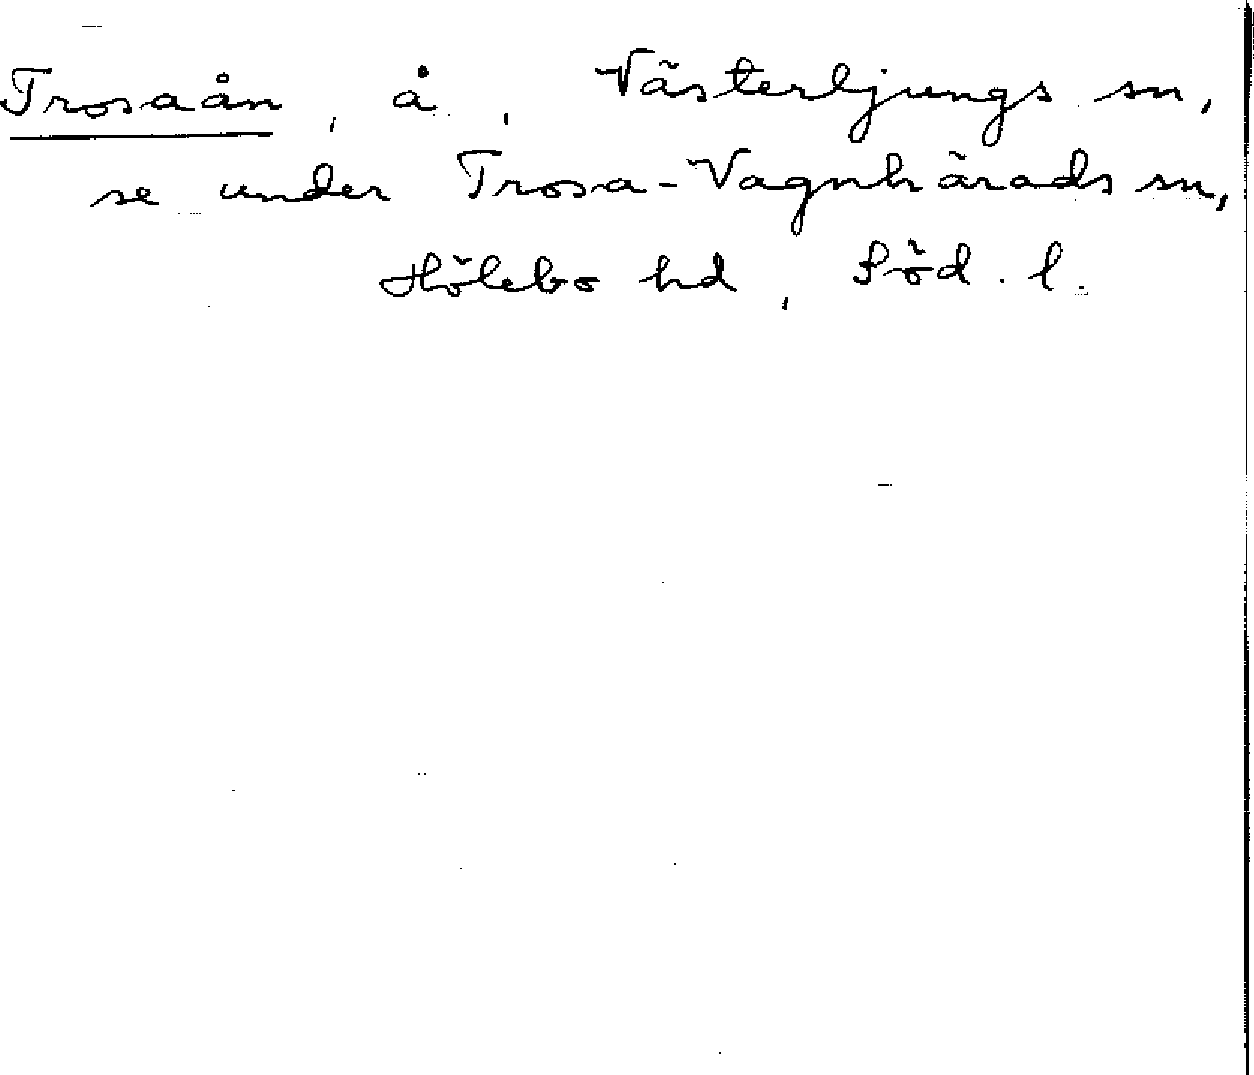 Trosaån, å, Västerljungs sn,
se under Trosa-Vagnhärads sn,
Hölebo hd, Söd. l.